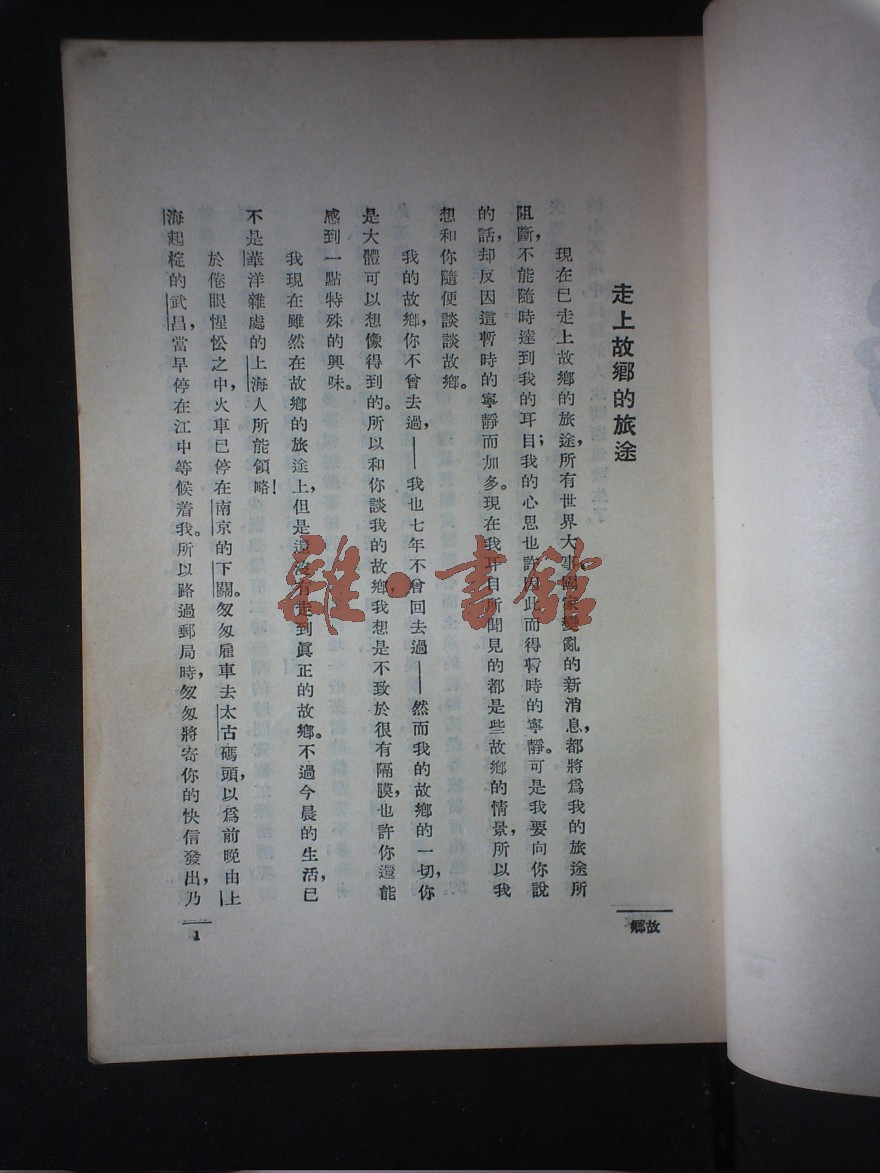 走上故鄉的旅途
現在已走上故鄉的旅途，所有世界大事國家變亂的新消息，都將爲我的旅途所
阻斷，不能隨時達到我的耳目；我的心思也許因此而得暫時的寧靜。可是我要向你說
的話，却反因這暫時的寧靜而加多。現在我耳目所聞見的都是些故鄉的情景，所以我
想和你隨便談談故鄉。
我的故鄉，你不曾去過，——我也七年不曾回去過——然而我的故鄉的一切，你
是大體可以想像得到的。所以和你談我的故鄉，我想是不致於很有隔膜，也許你還能
感到一點特殊的興味。
我現在雖然在故鄉的旅途上，但是還沒有走到眞正的故鄉。不過今晨的生活，已
不是華洋雜處的上海人所能領略！
於倦眼惺忪之中，火車已停在南京的下關。匆匆雇車去太古碼頭，以爲前晚由上
海起椗的武昌，當早停在江中等候着我。所以路過郵局時，匆匆將寄你的快信發出，乃
故鄉
1
雜·書館